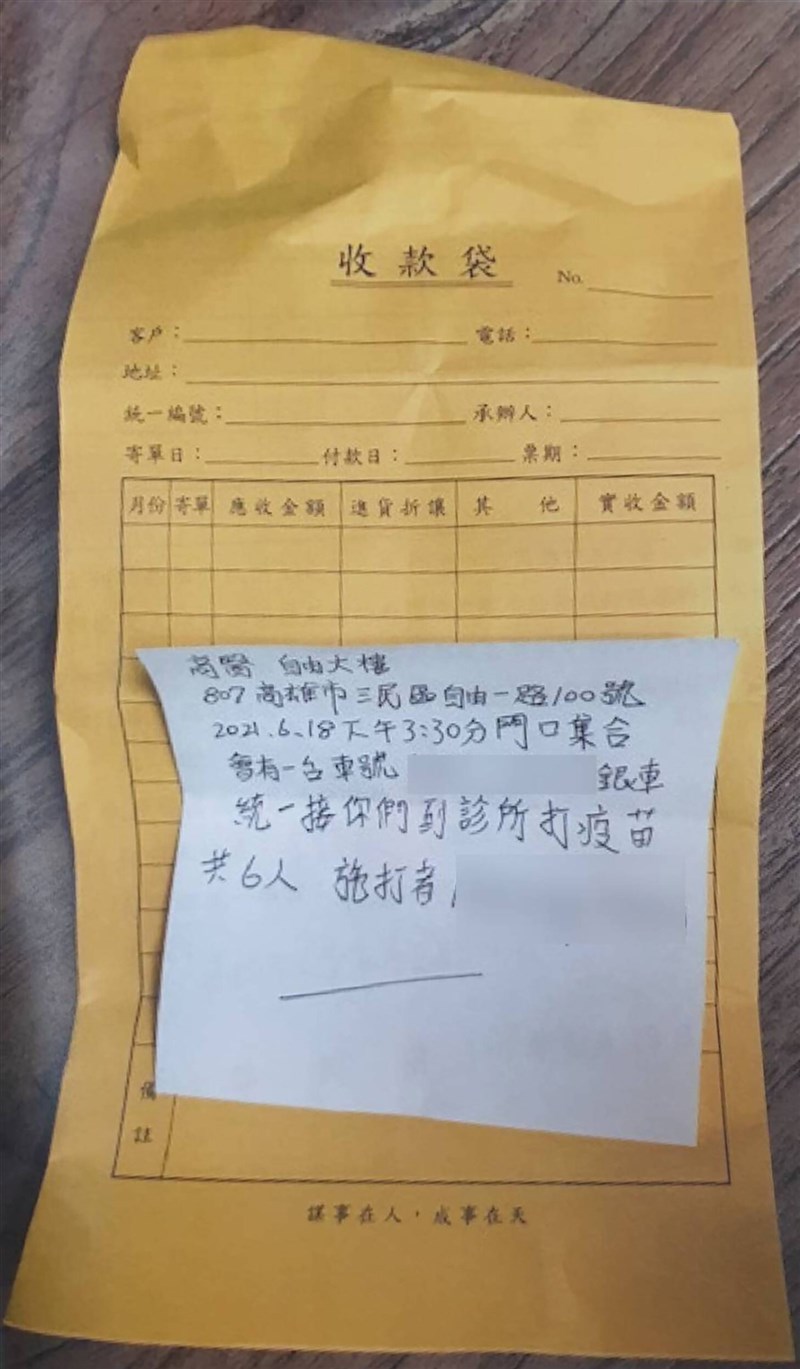 收款袋
No.
客戶： 電話：
地址：
統一編號： 承辦人：
寄單日： 付款日： 票期：
月份 寄單 應收金額 進貨折讓 其他 實收金額
高醫 自由大樓
807高雄市三民區自由一路100號
2021.6.18下午3:30分門口集合
會有一台車號 銀車
統一接你們到診所打疫苗
共6人 施打者
備註
謀事在人，成事在天